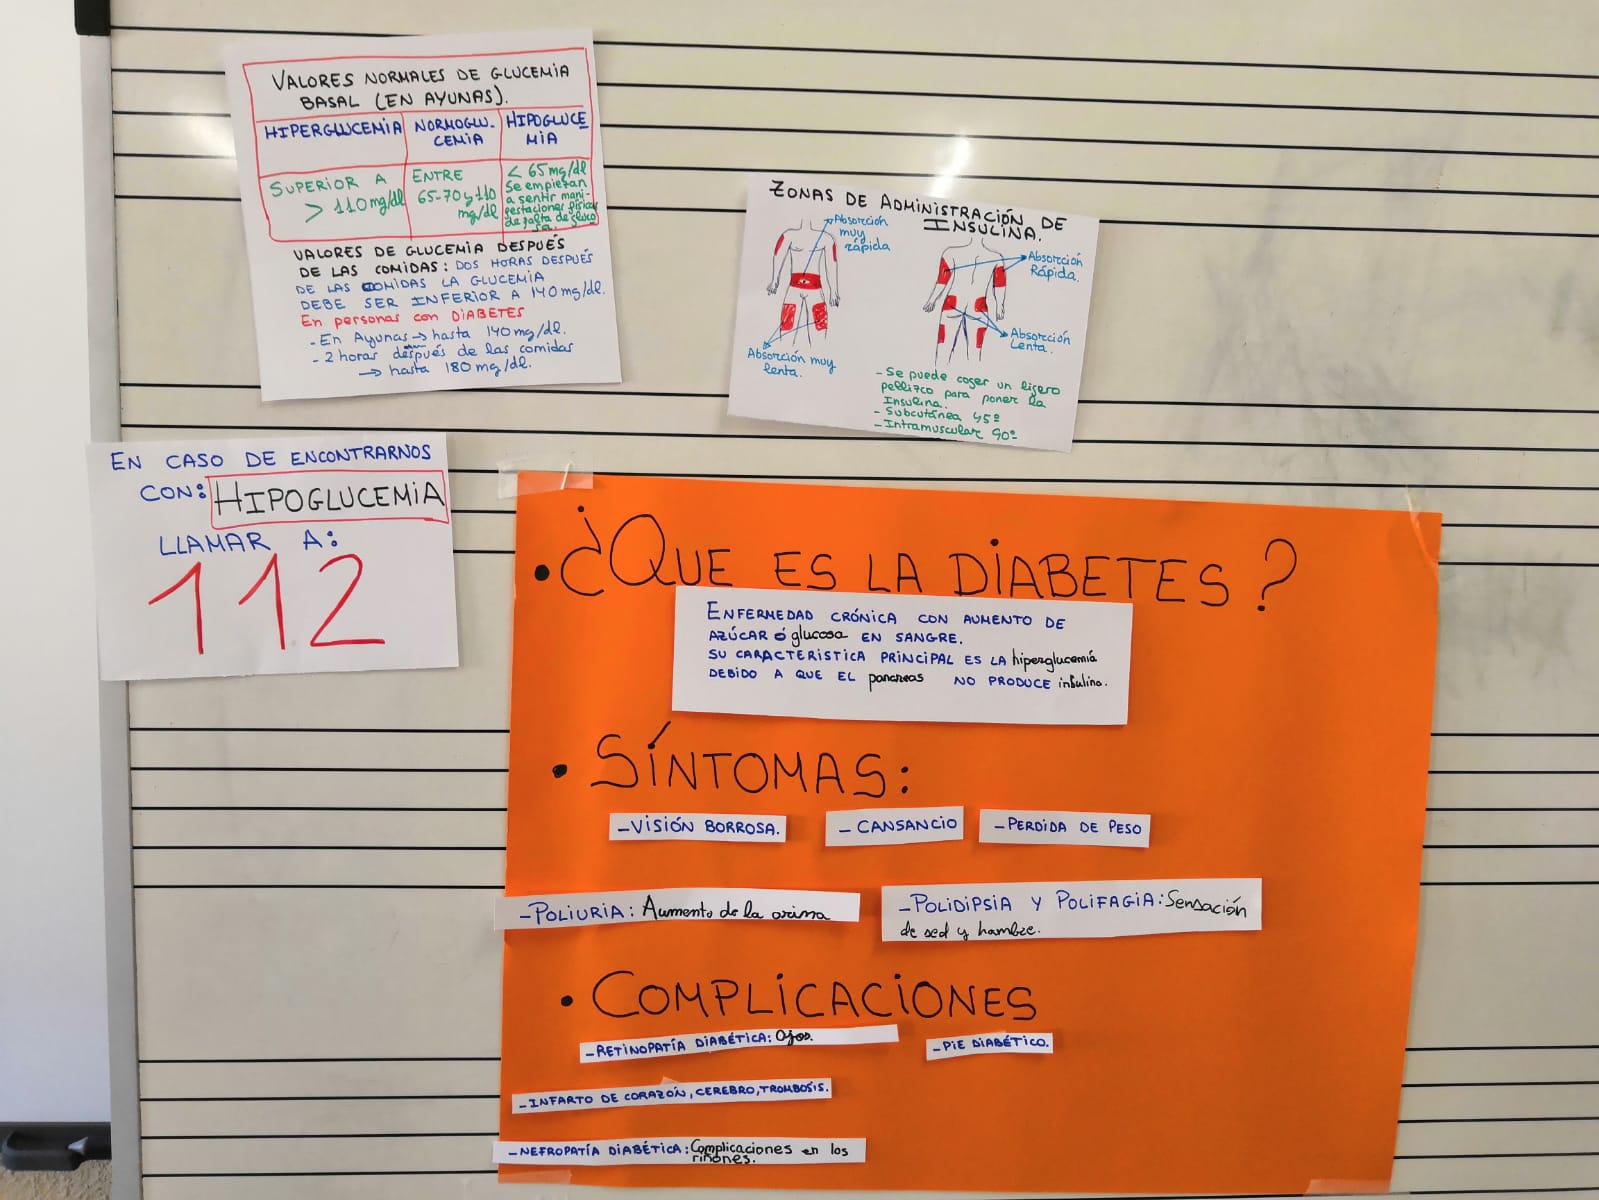 VALORES NORMALES DE GLUCEMIA
BASAL (EN AYUNAS).
HIPERGLUCEMIA
NORMOGLU-
CEMIA
HIPOGLUCE
MIA
SUPERIOR A
> 110 mg/dl
ENTRE
65-70 y 110
mg/dl
< 65 mg/dl
Se empiezan
a sentir mani-
festaciones físicas
de falta de gluco
sa.
VALORES DE GLUCEMIA DESPUÉS
DE LAS COMIDAS: DOS HORAS DESPUÉS
DE LAS COMIDAS LA GLUCEMIA
DEBE SER INFERIOR A 140 mg/dl.
En personas con DIABETES
- En Ayunas → hasta 140 mg/dl.
- 2 horas después de las comidas
→ hasta 180 mg/dl.
ZONAS DE ADMINISTRACIÓN DE
INSULINA.
Absorción
muy
rápida
Absorción
Rápida.
Absorción
Lenta.
Absorción muy
lenta.
- Se puede coger un ligero
pellizco para poner la
Insulina.
- Subcutánea 45º
- Intramuscular 90º
EN CASO DE ENCONTRARNOS
CON: HIPOGLUCEMIA
LLAMAR A:
112
• ¿QUE ES LA DIABETES?
ENFERMEDAD CRÓNICA CON AUMENTO DE
AZÚCAR ó glucosa EN SANGRE.
SU CARACTERISTICA PRINCIPAL ES LA hiperglucemia
DEBIDO A QUE EL pancreas NO PRODUCE insulina.
• SÍNTOMAS:
- VISIÓN BORROSA.
- CANSANCIO
- PERDIDA DE PESO
- POLIURIA: Aumento de la orina
- POLIDIPSIA Y POLIFAGIA: Sensación
de sed y hambre.
• COMPLICACIONES
- RETINOPATÍA DIABÉTICA: Ojos.
- PIE DIABÉTICO.
- INFARTO DE CORAZÓN, CEREBRO, TROMBOSIS.
- NEFROPATÍA DIABÉTICA: Complicaciones en los
riñones.